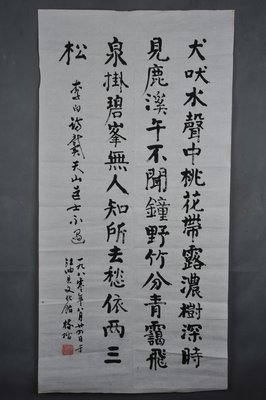 犬吠水聲中桃花帶露濃樹深時
見鹿溪午不聞鐘野竹分青靄飛
泉掛碧峯無人知所去愁依兩三
松
李白訪戴天山道士不遇
一九八零年八月廿四日于